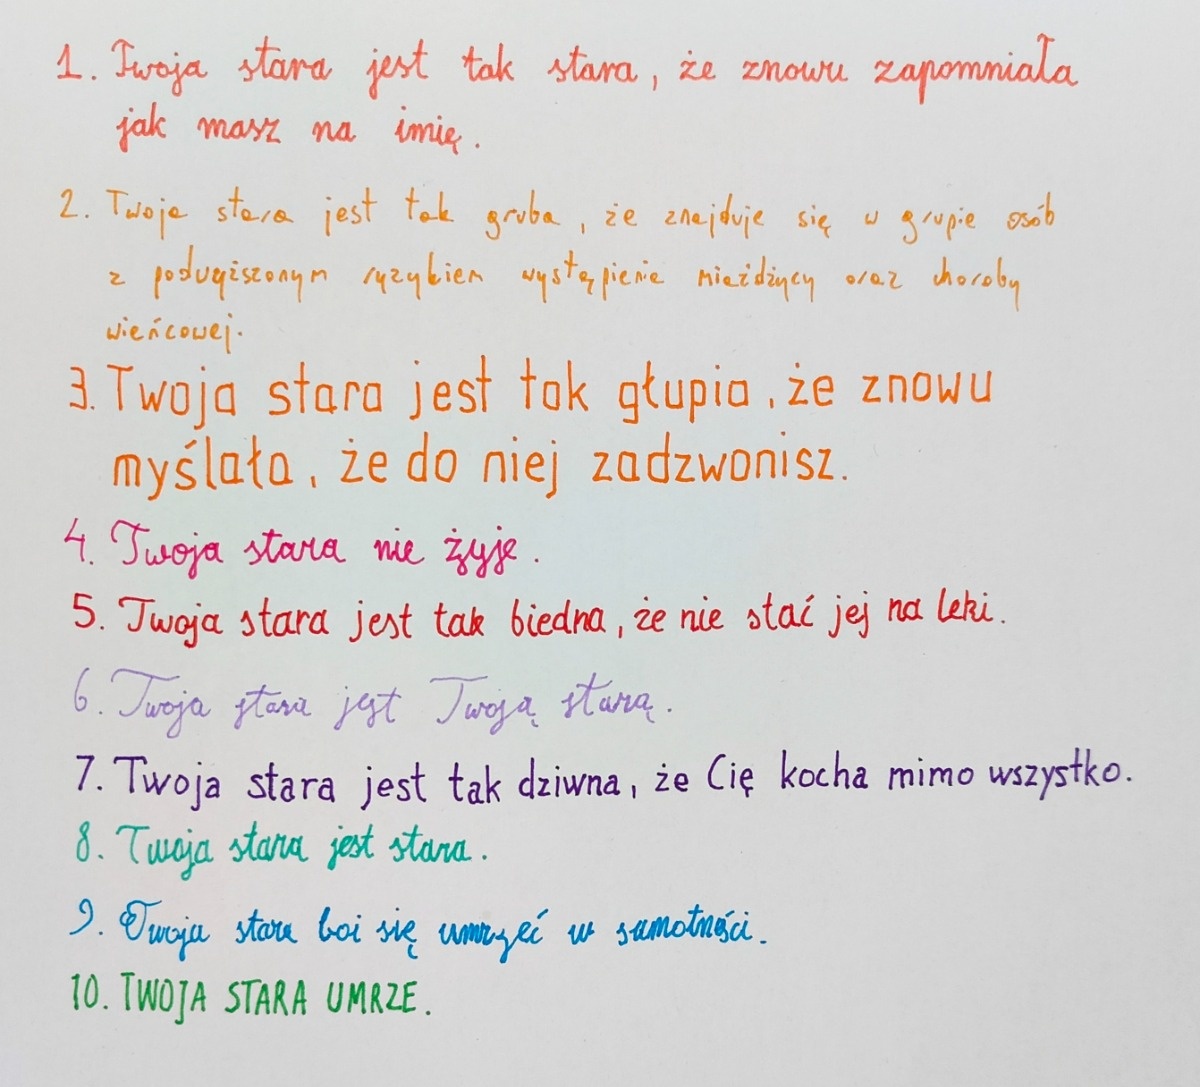 1. Twoja stara jest tak stara, że znowu zapomniała
jak masz na imię.
2. Twoja stara jest tak gruba, że znajduje się w grupie osób
z podwyższonym ryzykiem wystąpienia miażdżycy oraz choroby
wieńcowej.
3. Twoja stara jest tak głupia, że znowu
myślała, że do niej zadzwonisz.
4. Twoja stara nie żyje.
5. Twoja stara jest tak biedna, że nie stać jej na leki.
6. Twoja stara jest Twoją starą.
7. Twoja stara jest tak dziwna, że Cię kocha mimo wszystko.
8. Twoja stara jest stara.
9. Twoja stara boi się umrzeć w samotności.
10. TWOJA STARA UMRZE.